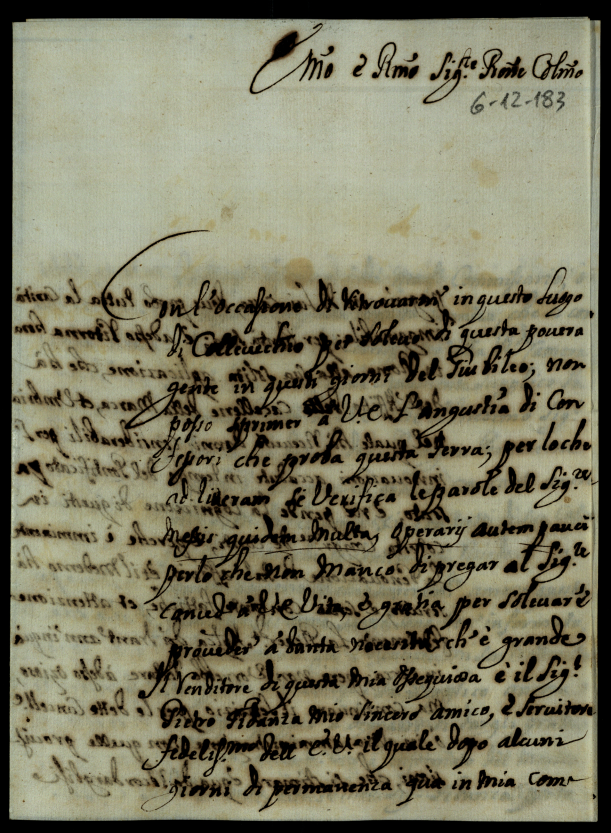 Emo è Rmo Sig.re Prone Colmo
6-12-183
In l'occasione di ritrovarmi in questo luogo
di Collevechio per solevo di questa povera
gente in questi giorni del Giubileo; non
posso esprimer a V.E. l'angustia di Con
fessori che proba questa Terra; per loche
ad literam si Verifica le parole del Sig.re
Messis quidem multa, operarij autem pauci
perlo che non manco di pregar al Sig.re
conieda à V.E. Vita, è gratia per solevar è
proveder à tanta necessità ch'è grande
Il Venditore di questa mia ossequiosa è il Sig.r
Pietro mio sincero amico, è servitore
fedeliss.mo dell' E.V. il quale dopo alcuni
giorni di permanenza quà in mia com-